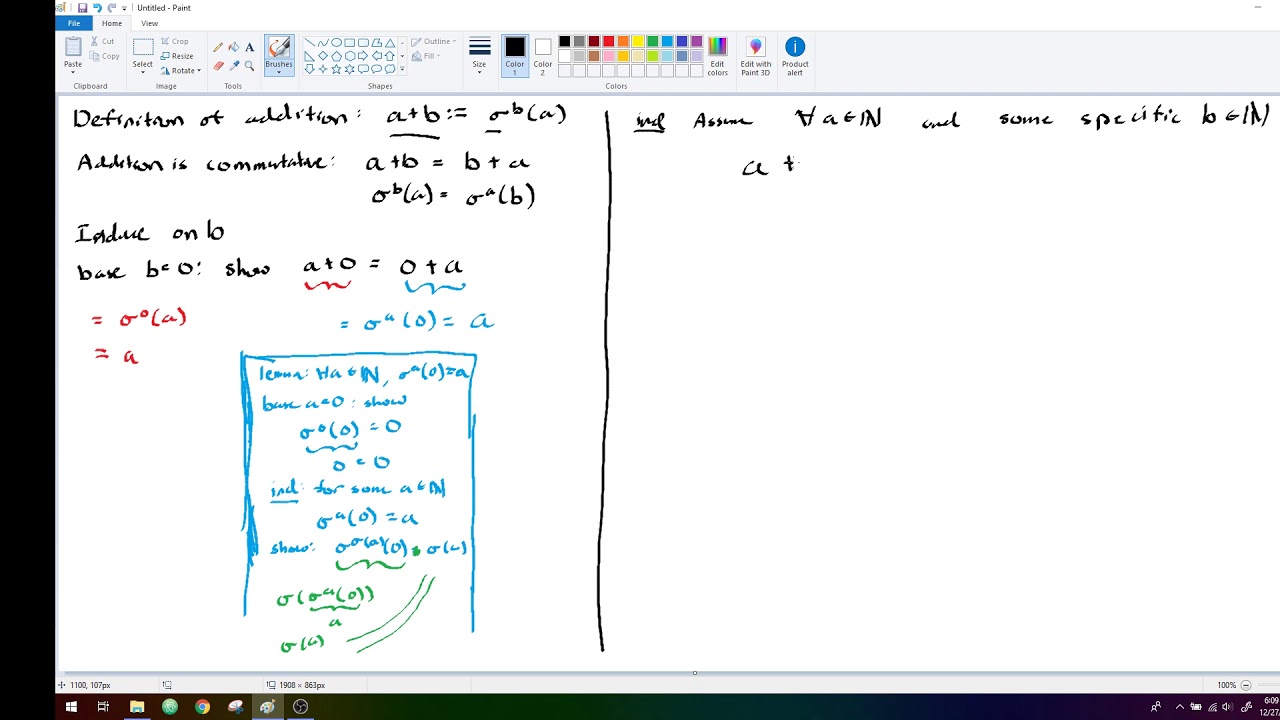 Untitled - Paint
File Home View
Paste
Cut
Copy
Clipboard
Select
Crop
Resize
Rotate
Image
A
Tools
Brushes
Shapes
Outline
Fill
Size
Color 1
Color 2
Colors
Edit colors
Edit with Paint 3D
Product alert
Definition of addition: a+b := σᵇ(a)
Addition is commutative: a+b = b+a
σᵇ(a) = σᵃ(b)
Induce on b
base b=0: show a+0 = 0+a
= σ⁰(a)
= a
= σᵃ(0) = a
lemma: ∀a∈ℕ, σᵃ(0)=a
base a=0: show
σ⁰(0) = 0
0 = 0
ind: for some a∈ℕ
σᵃ(0) = a
show: σ^σ(a)(0) = σ(a)
σ(σᵃ(0))
a
σ(a)
ind Assume ∀a∈ℕ and some specific b∈ℕ
a +
1100, 107px
1908 × 863px
100%
6:09
12/27/